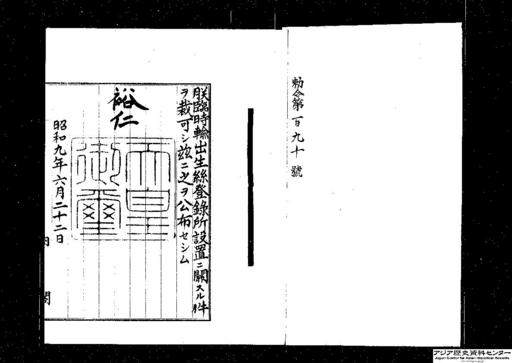 勅令第百九十號
朕臨時輸出生絲登錄所設置ニ關スル件
ヲ裁可シ茲ニ之ヲ公布セシム
裕仁
天皇御璽
昭和九年六月二十二日
内閣
アジア歴史資料センター
Japan Center for Asian Historical Records